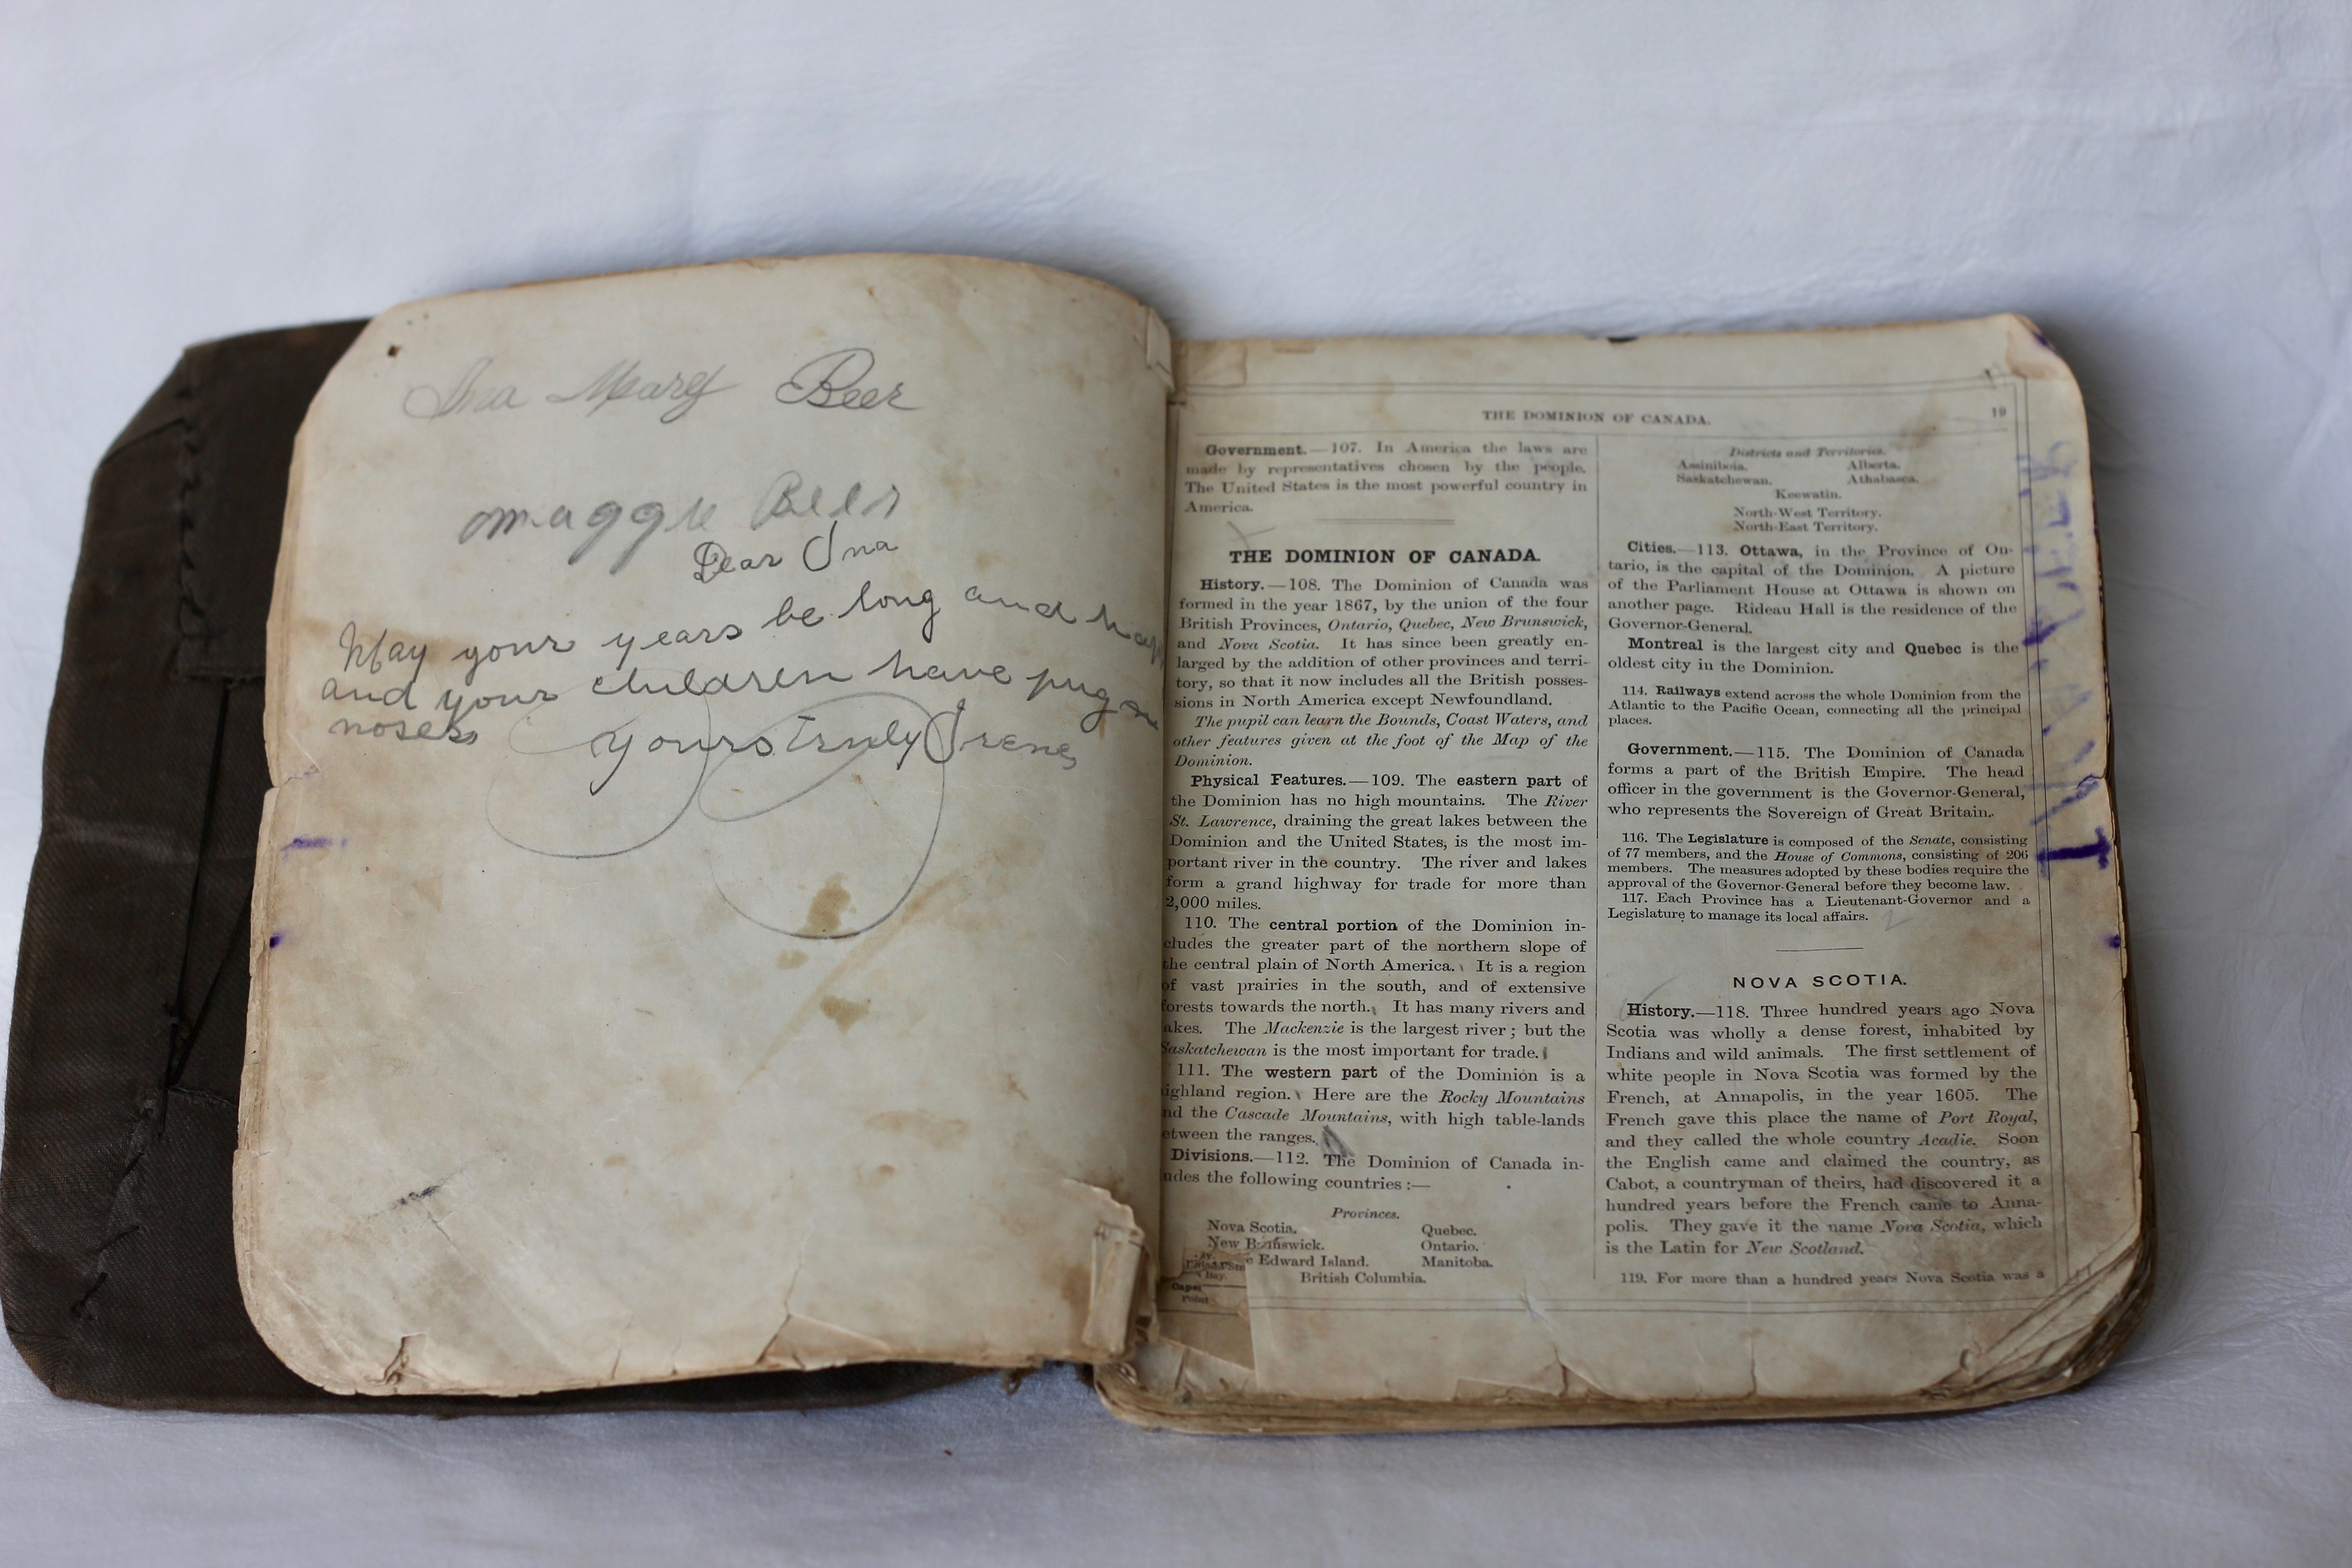 Ina Mary Beer
maggie Beer
Dear Ina
May your years be long and hap
and your children have pug
noses
yours truly Irene
THE DOMINION OF CANADA.
19
Government.—107. In America the laws are
made by representatives chosen by the people.
The United States is the most powerful country in
America.
THE DOMINION OF CANADA.
History.—108. The Dominion of Canada was
formed in the year 1867, by the union of the four
British Provinces, Ontario, Quebec, New Brunswick,
and Nova Scotia. It has since been greatly en-
larged by the addition of other provinces and terri-
tory, so that it now includes all the British posses-
sions in North America except Newfoundland.
The pupil can learn the Bounds, Coast Waters, and
other features given at the foot of the Map of the
Dominion.
Physical Features.—109. The eastern part of
the Dominion has no high mountains. The River
St. Lawrence, draining the great lakes between the
Dominion and the United States, is the most im-
portant river in the country. The river and lakes
form a grand highway for trade for more than
2,000 miles.
110. The central portion of the Dominion in-
cludes the greater part of the northern slope of
the central plain of North America. It is a region
of vast prairies in the south, and of extensive
forests towards the north. It has many rivers and
akes. The Mackenzie is the largest river; but the
Saskatchewan is the most important for trade.
111. The western part of the Dominion is a
ighland region. Here are the Rocky Mountains
nd the Cascade Mountains, with high table-lands
etween the ranges.
Divisions.—112. The Dominion of Canada in-
udes the following countries:—
Provinces.
Nova Scotia. Quebec.
New Brunswick. Ontario.
e Edward Island. Manitoba.
British Columbia.
Bay.
Cape
Point
Districts and Territories.
Assiniboia. Alberta.
Saskatchewan. Athabasca.
Keewatin.
North-West Territory.
North-East Territory.
Cities.—113. Ottawa, in the Province of On-
tario, is the capital of the Dominion. A picture
of the Parliament House at Ottawa is shown on
another page. Rideau Hall is the residence of the
Governor-General.
Montreal is the largest city and Quebec is the
oldest city in the Dominion.
114. Railways extend across the whole Dominion from the
Atlantic to the Pacific Ocean, connecting all the principal
places.
Government.—115. The Dominion of Canada
forms a part of the British Empire. The head
officer in the government is the Governor-General,
who represents the Sovereign of Great Britain.
116. The Legislature is composed of the Senate, consisting
of 77 members, and the House of Commons, consisting of 206
members. The measures adopted by these bodies require the
approval of the Governor-General before they become law.
117. Each Province has a Lieutenant-Governor and a
Legislature to manage its local affairs.
NOVA SCOTIA.
History.—118. Three hundred years ago Nova
Scotia was wholly a dense forest, inhabited by
Indians and wild animals. The first settlement of
white people in Nova Scotia was formed by the
French, at Annapolis, in the year 1605. The
French gave this place the name of Port Royal,
and they called the whole country Acadie. Soon
the English came and claimed the country, as
Cabot, a countryman of theirs, had discovered it a
hundred years before the French came to Anna-
polis. They gave it the name Nova Scotia, which
is the Latin for New Scotland.
119. For more than a hundred years Nova Scotia was a